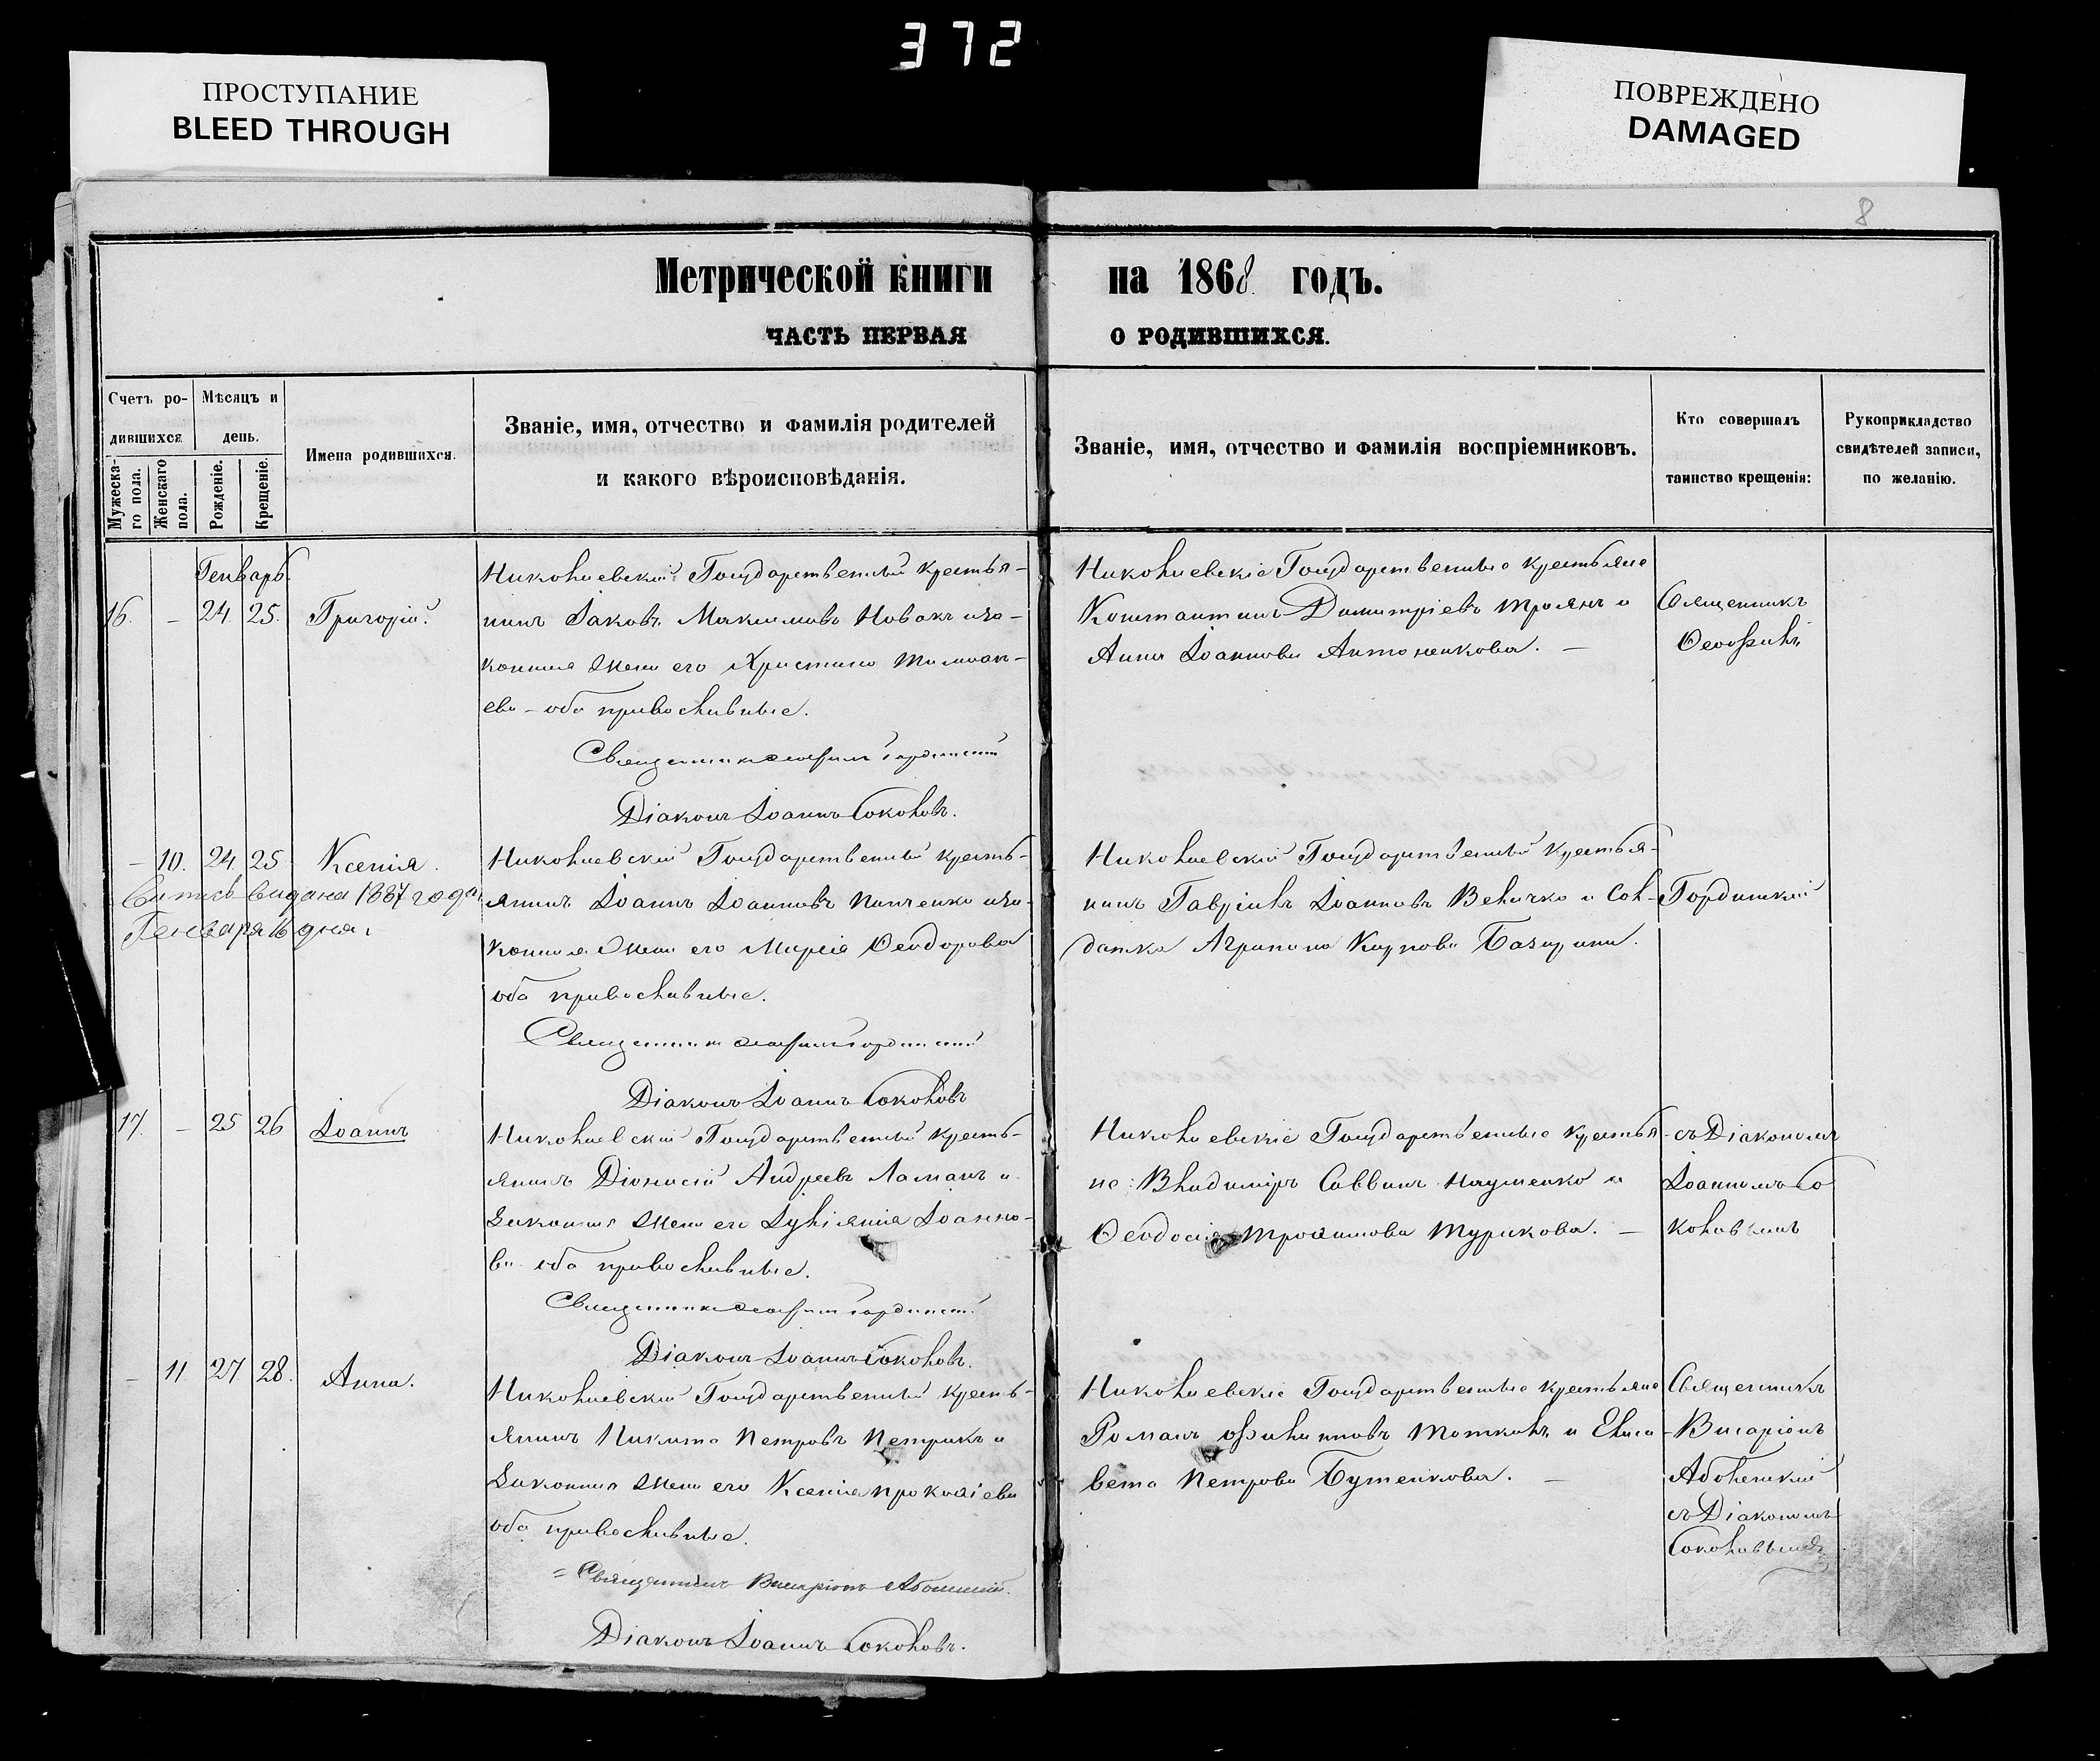 372
ПРОСТУПАНИЕ
BLEED THROUGH
ПОВРЕЖДЕНО
DAMAGED
8
Метрической книги на 1868 годъ.
ЧАСТЬ ПЕРВАЯ О РОДИВШИХСЯ.
Счетъ ро-
дившихся
Мѣсяцъ и
день.
Мужеска-
го пола.
Женскаго
пола.
Рожденіе.
Крещеніе.
Имена родившихся.
Званіе, имя, отчество и фамилія родителей
и какого вѣроисповѣданія.
Званіе, имя, отчество и фамилія воспріемниковъ.
Кто совершалъ
таинство крещенія:
Рукоприкладство
свидѣтелей записи,
по желанію.
Генварь
16. – 24. 25. Григорій.
Николаевскій Государственный крестья-
нинъ Іаковъ Максимовъ Новакъ и за-
конная жена его Христина
ева – оба православные.
Священникъ Гордынскій
Діаконъ Іоаннъ Соколовъ.
Николаевскіе Государственные крестьяне
Константинъ Димитріевъ Троянъ и
Анна Іоаннова Антоненкова. –
Священникъ
Ѳеофилъ
– 10. 24. 25. Ксенія.
выдана 1887 года
Генваря 16 дня.
Николаевскій Государственный кресть-
янинъ Іоаннъ Іоанновъ Панченко и за-
конная жена его Марія Ѳеодорова
оба православные.
Священникъ Гордынскій
Діаконъ Іоаннъ Соколовъ
Николаевскій Государственный крестья-
нинъ Гавріилъ Іоанновъ Величко и Сол-
датка Агрипина Карпова
Гордынскій
17. – 25 26 Іоаннъ
Николаевскій Государственный кресть-
янинъ Діонисій Андреевъ Ламанъ и
Законная жена его Іуліанія Іоанно-
ва оба православные.
Священникъ Гордынскій
Діаконъ Іоаннъ Соколовъ.
Николаевскіе Государственные крестья-
не: Владиміръ Саввинъ Науменко и
Ѳеодосія Трофимова Турикова. –
съ Діакономъ
Іоанномъ Со
коловымъ
– 11. 27. 28. Анна.
Николаевскій Государственный кресть-
янинъ Никита Петровъ Петрикъ и
Законная жена его Ксенія Прокопіева
оба православные.
Священникъ Висаріонъ
Діаконъ Іоаннъ Соколовъ.
Николаевскіе Государственные крестьяне
Романъ Филипповъ и Елиса-
вета Петрова Бутенкова. –
Священникъ
Висаріонъ
съ Діакономъ
Соколовымъ